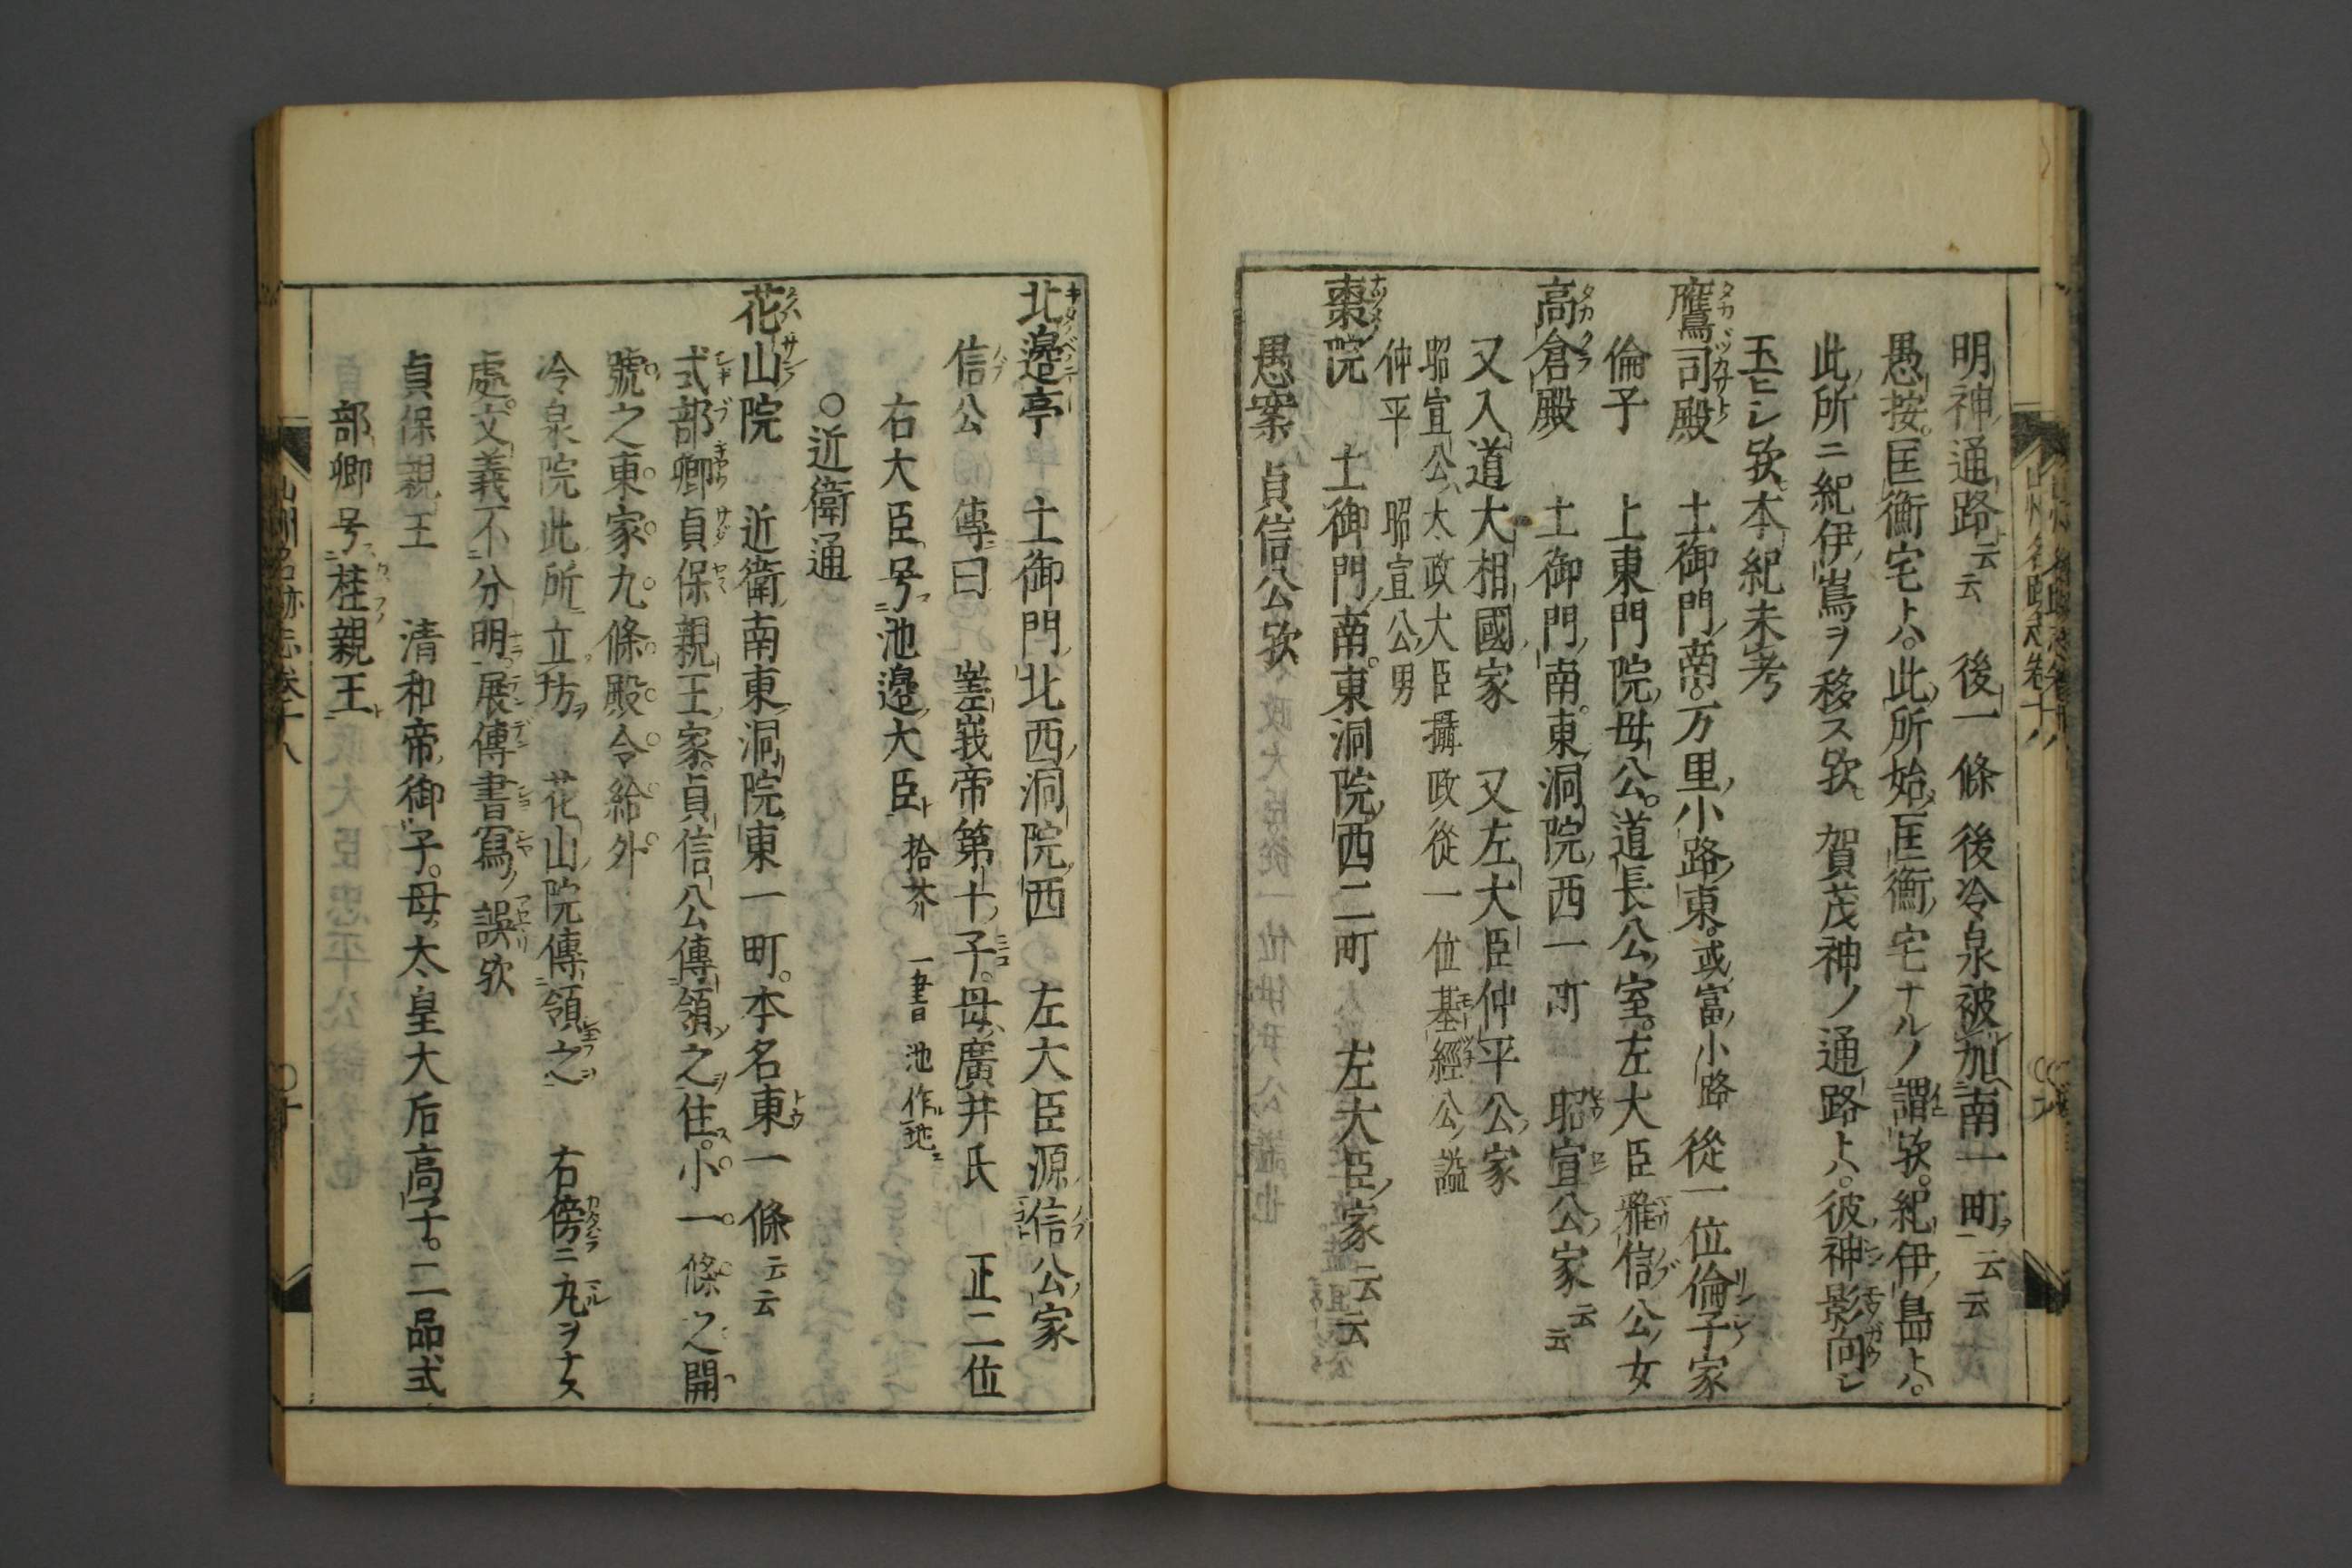 明神通路云云 後一條 後冷泉被加南一町云云
愚按匡衡宅トハ此所始匡衡宅ナルノ謂欤紀伊島トハ
此所ニ紀伊嶌ヲ移ス欤 賀茂神ノ通路トハ彼神影向シ
玉ヒシ欤本紀未考
鷹司殿 土御門南万里小路東或富小路 從一位倫子家
倫子 上東門院母公道長公室左大臣雅信公女
高倉殿 土御門南東洞院西一町 昭宣公家云云
又入道大相國家 又左大臣仲平公家
昭宣公太政大臣攝政從一位基經公謚
仲平 昭宣公男
棗院 土御門南東洞院西二町 左大臣家云云
愚案 貞信公欤
北邉亭 土御門北西洞院西 左大臣源信公家
信公 傳曰 嵳峩帝第十子母廣井氏 正二位
右大臣号池邉大臣 拾芥 一書曰 池作地
○近衛通
花山院 近衛南東洞院東一町本名東一條云云
式部卿貞保親王家貞信公傳領之住小一條之開
號之東家九條殿令給外
冷泉院此所立坊 花山院傳領之 右傍ニ丸ヲナス
處文義不分明展傳書寫ノ誤欤
貞保親王 清和帝御子母太皇大后高子二品式
部卿号桂親王
山州名跡志卷十八